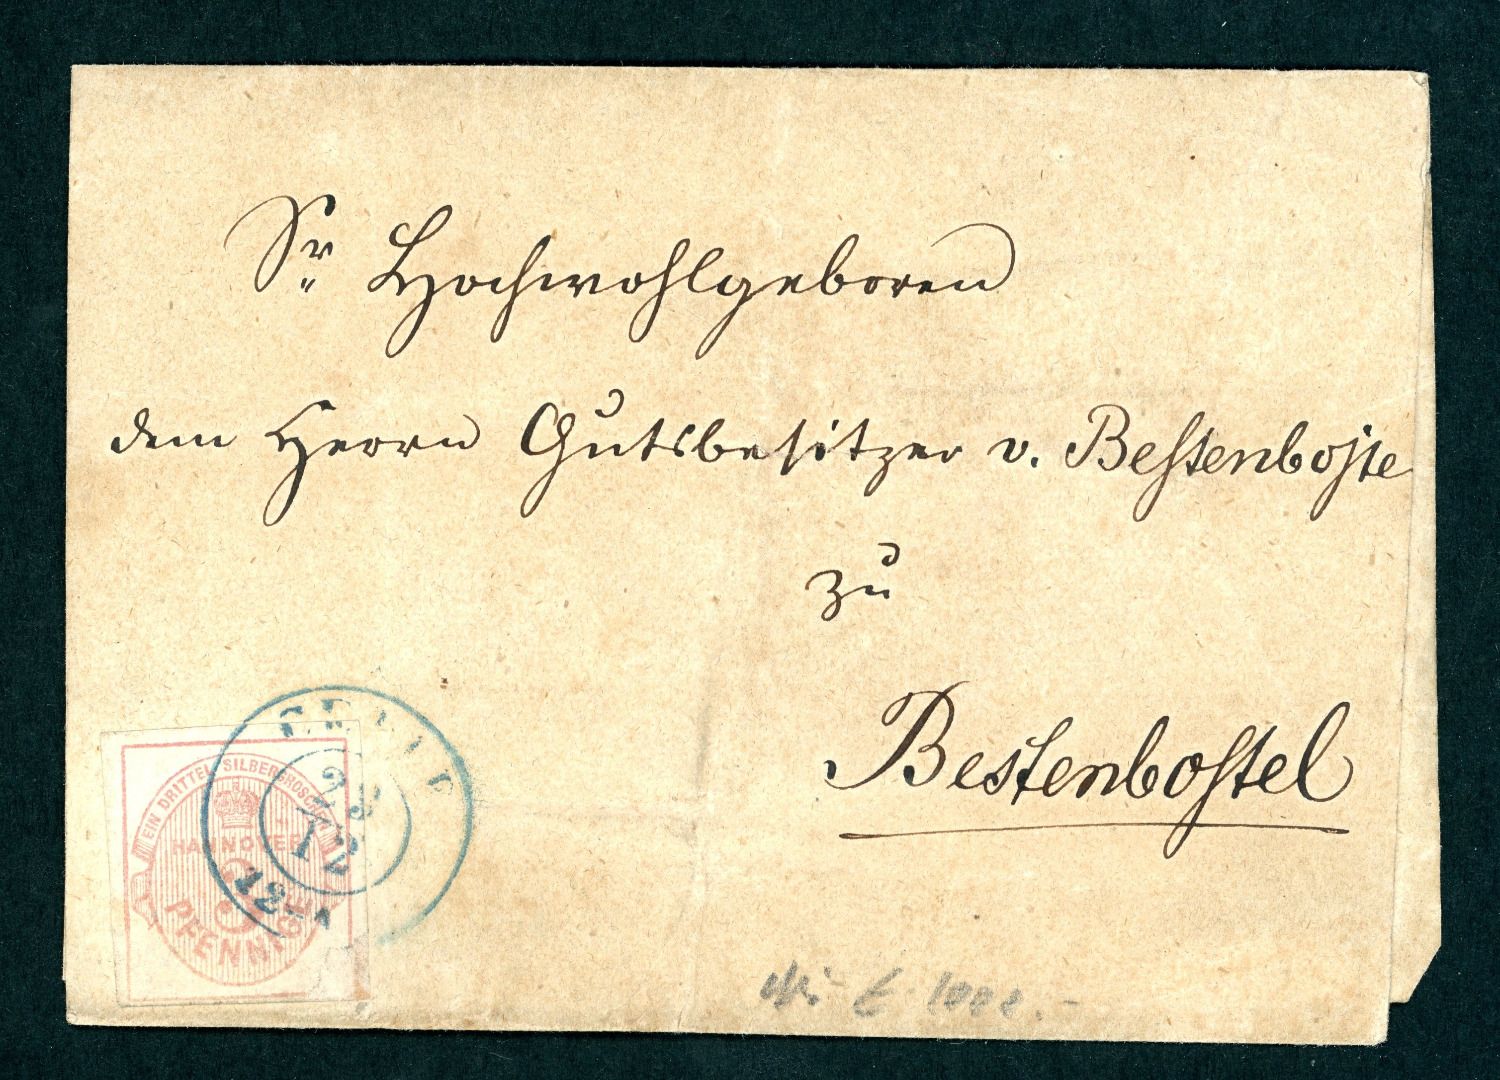 Sr Hochwohlgeboren
dem Herrn Gutsbesitzer v. Bestenboste
zu
Bestenbostel
EIN DRITTEL SILBERGROSCHEN
HANNOVER
3
PFENNIGE
CELLE
12
12